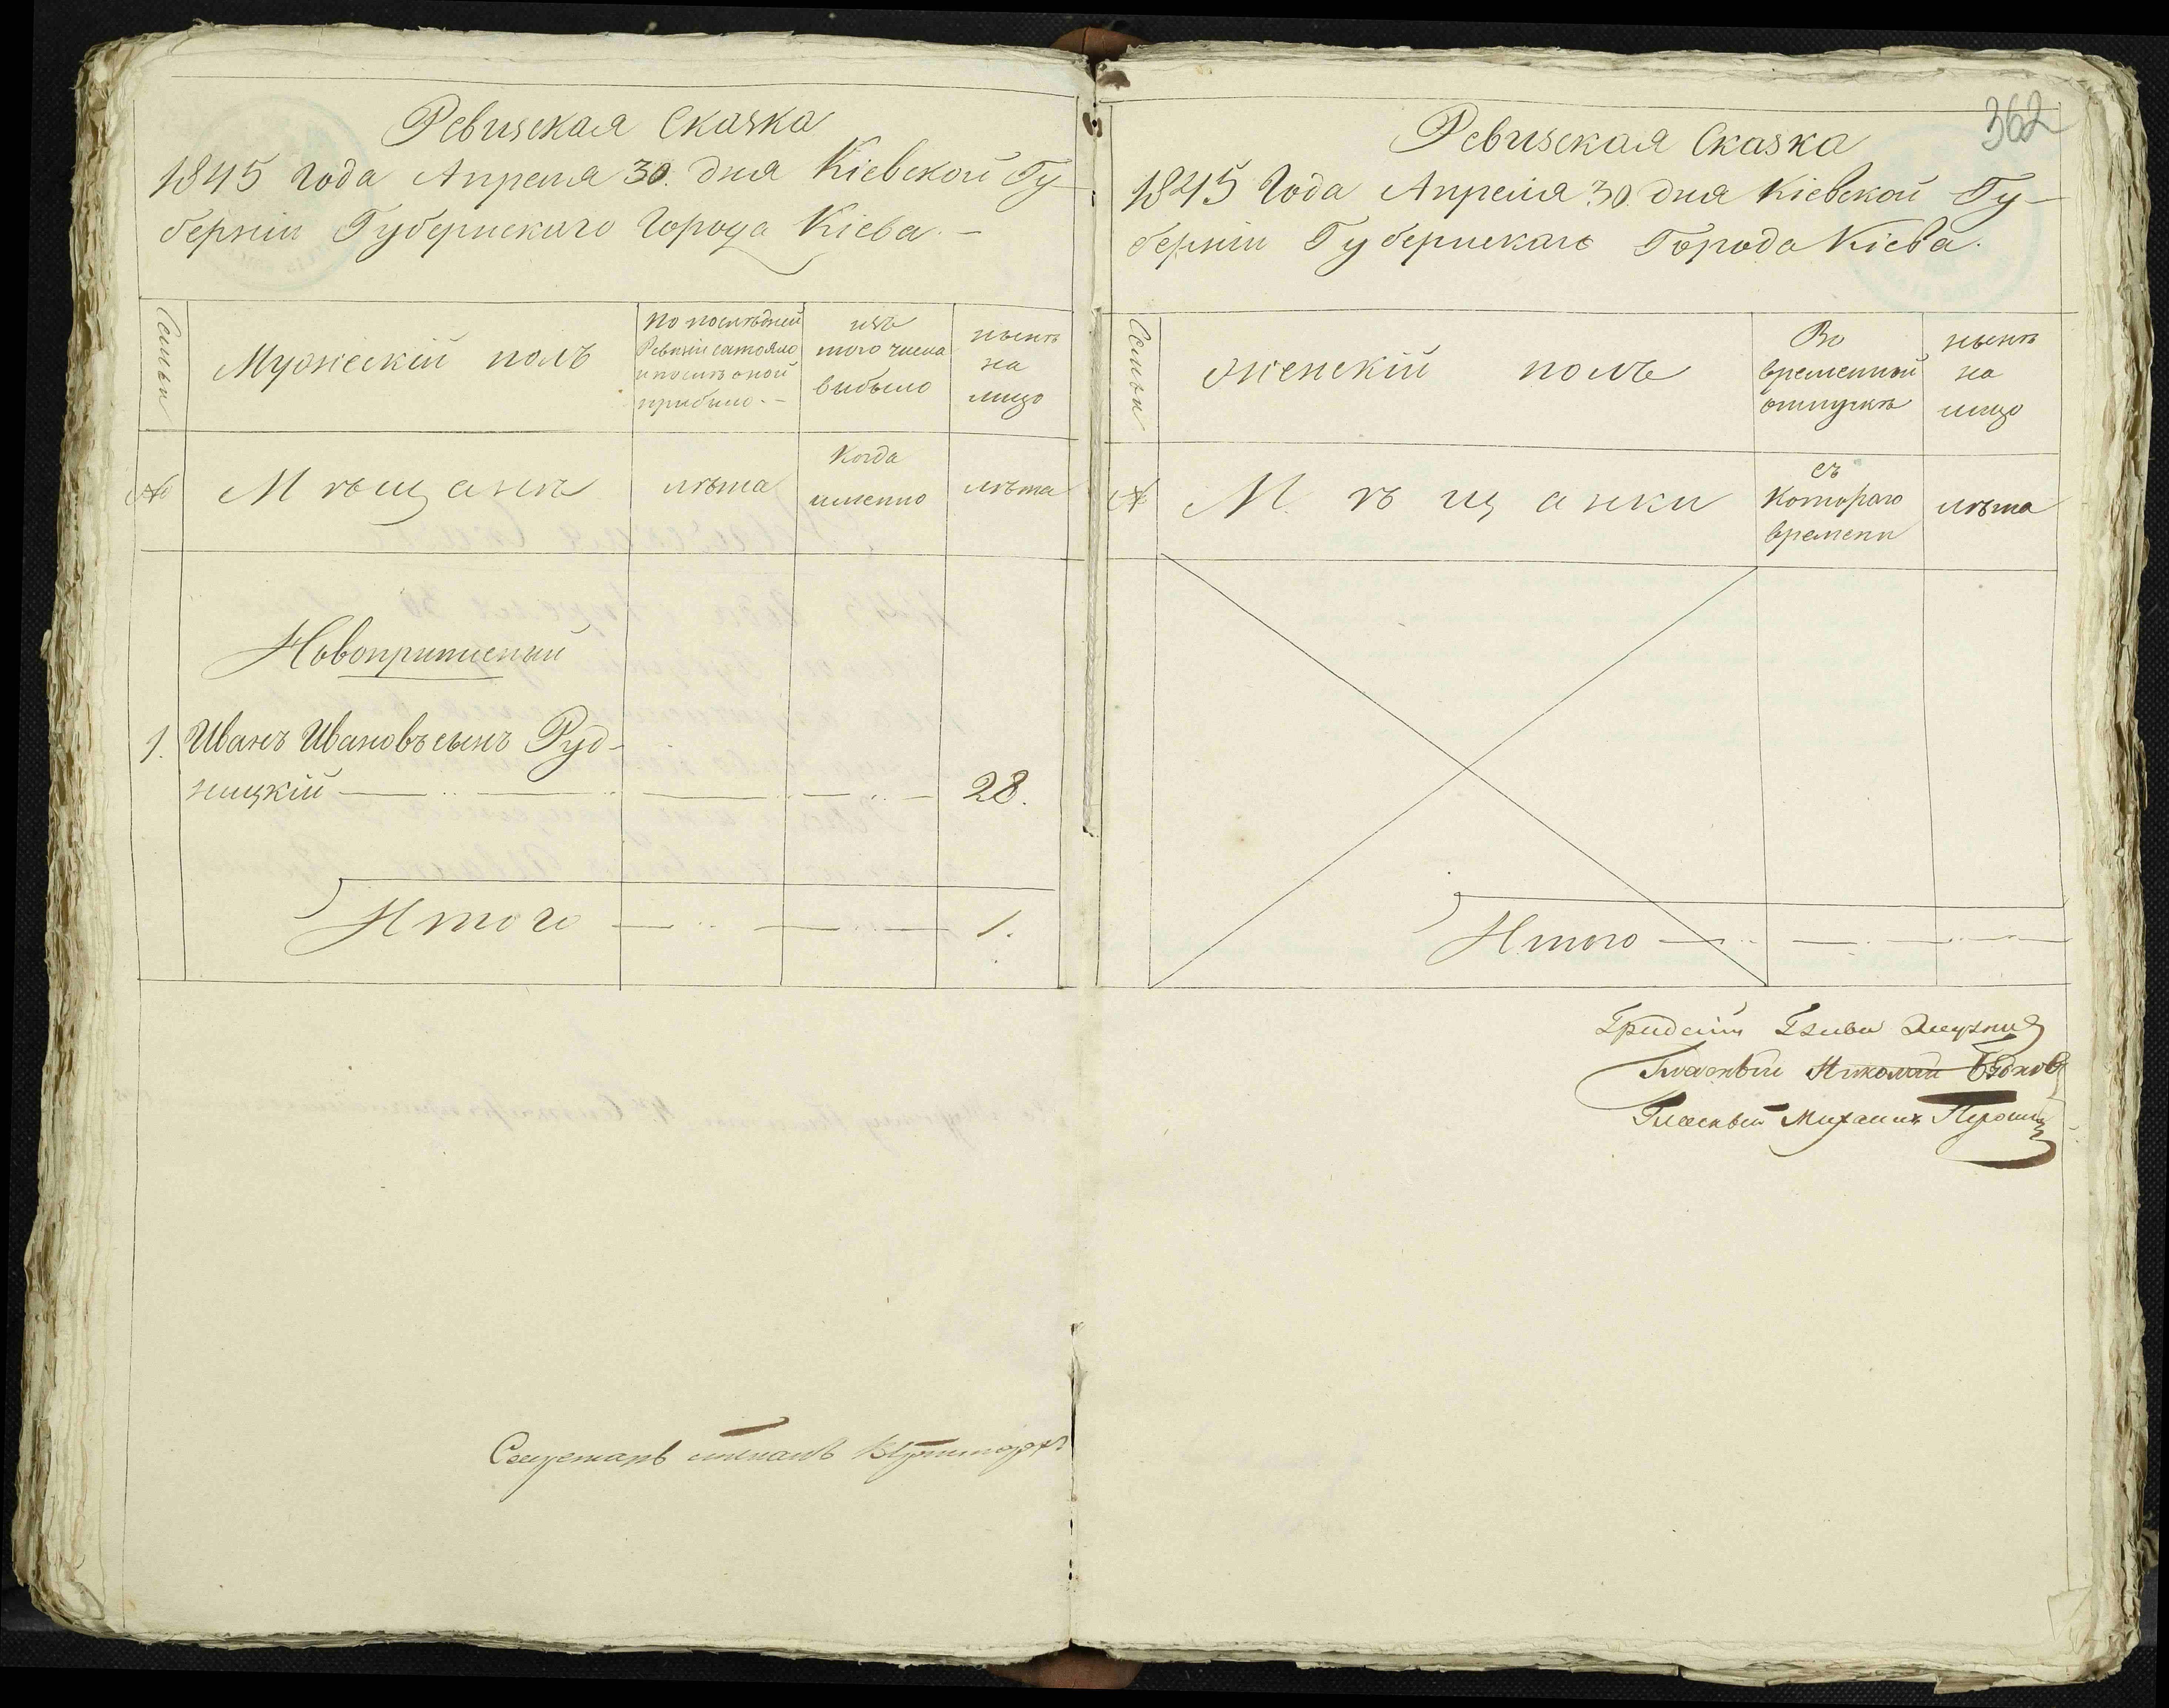 Ревизская Сказка
1845 года Апреля 30. дня Кіевской Гу-
берніи Губернскаго Города Кіева. -
Семьи
Мужескій полъ
по послѣдней
Ревизіи состояло
и послѣ оной
прибыло. -
изъ
того числа
выбыло
нынѣ
на
лицо
№
Мѣщанъ
лѣта
Когда
именно
лѣта
Новоприписный
1. Иванъ Ивановъ сынъ Руд-
ницкій 28.
Итого 1.
Секретарь
362
Ревизская Сказка
1845 Года Апреля 30. дня Кіевской Гу-
берніи Губернскаго Города Кіева.
Семьи
женскій полъ
Во
временной
отлучкѣ
нынѣ
на
лицо
№
Мѣщанки
съ
котораго
времени
лѣта
Итого
Гласный Николай
Гласный Михаилъ